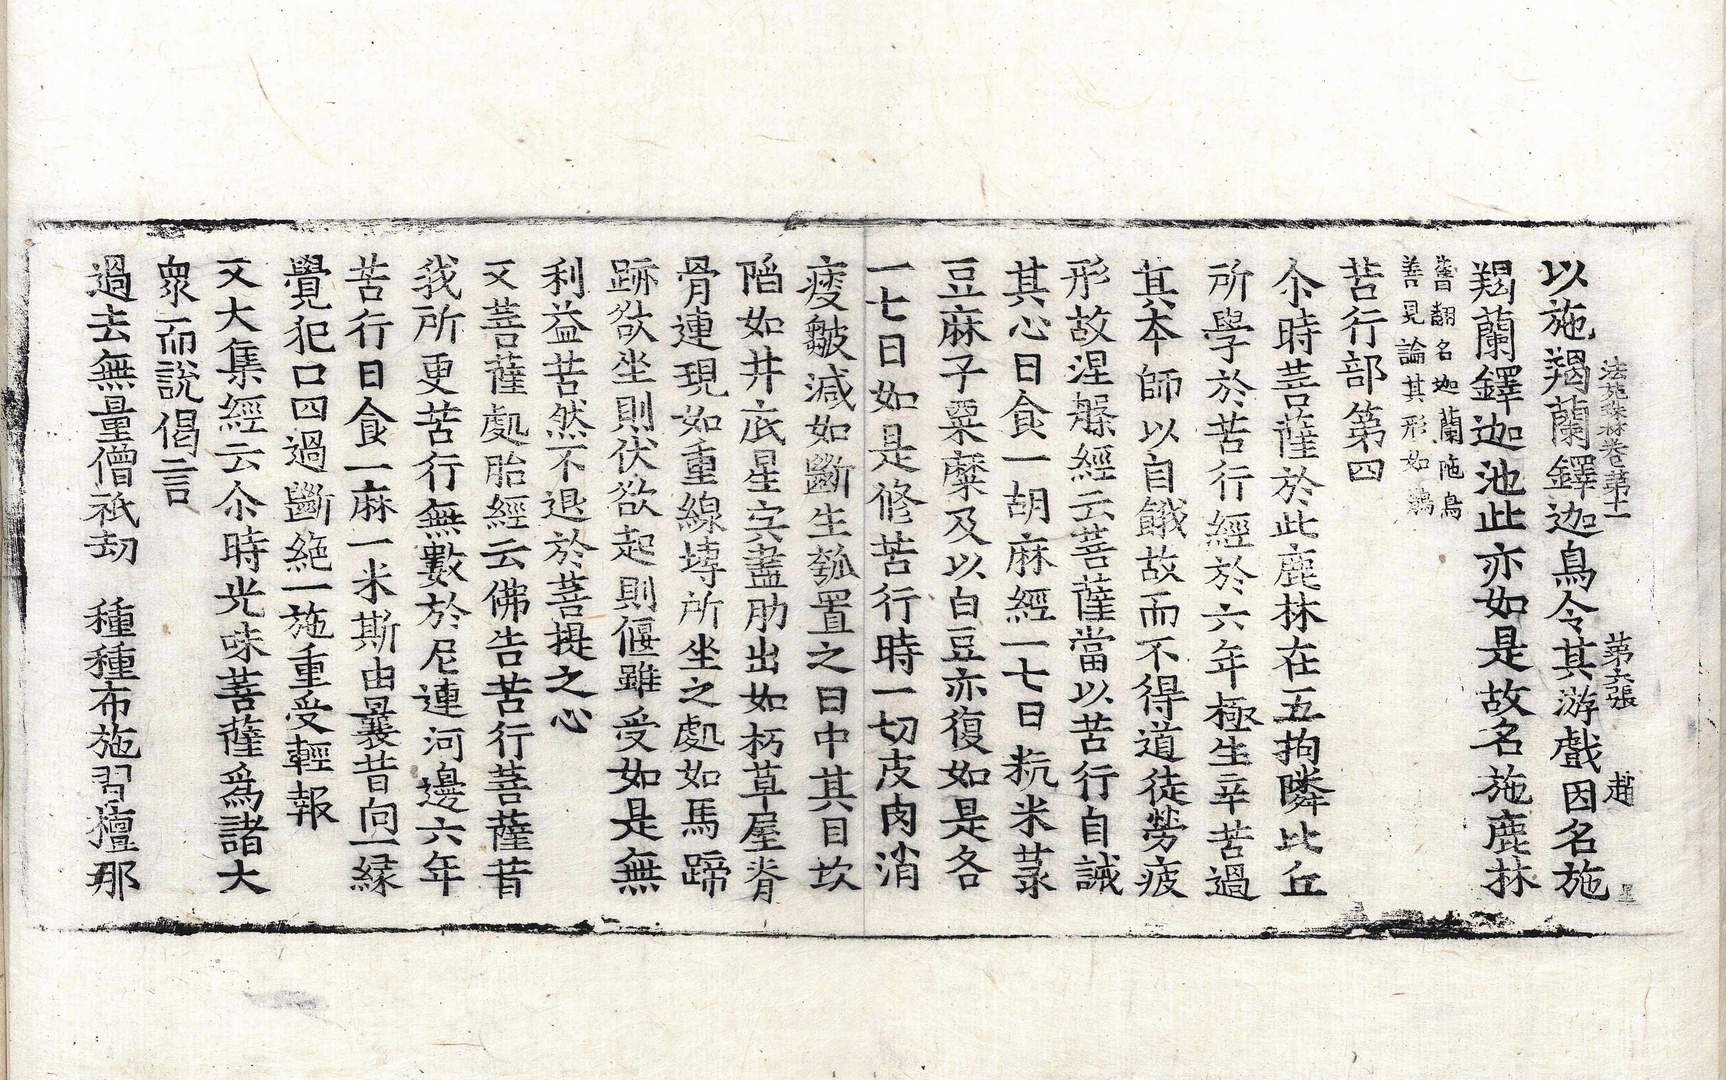 法苑珠林卷第十一　第六張　趙
以施羯蘭鐸迦鳥令其游戲因名施
羯蘭鐸迦池此亦如是故名施鹿林
舊翻名迦蘭陁鳥
善見論其形如鵲
苦行部第四
尒時菩薩於此鹿林在五拘隣比丘
所學於苦行經於六年極生辛苦過
其本師以自餓故而不得道徒勞疲
形故涅槃經云菩薩當以苦行自誡
其心日食一胡麻經一七日粇米菉
豆麻子粟糜及以白豆亦復如是各
一七日如是修苦行時一切皮肉消
瘦皺減如斷生瓠置之日中其目坎
陷如井底星宍盡肋出如朽草屋脊
骨連現如重線塼所坐之處如馬蹄
跡欲坐則伏欲起則偃雖受如是無
利益苦然不退於菩提之心
又菩薩處胎經云佛告苦行菩薩昔
我所更苦行無數於尼連河邊六年
苦行日食一麻一米斯由曩昔向一緣
覺犯口四過斷絕一施重受輕報
又大集經云尒時光味菩薩爲諸大
衆而說偈言
過去無量僧祇劫　種種布施習檀那